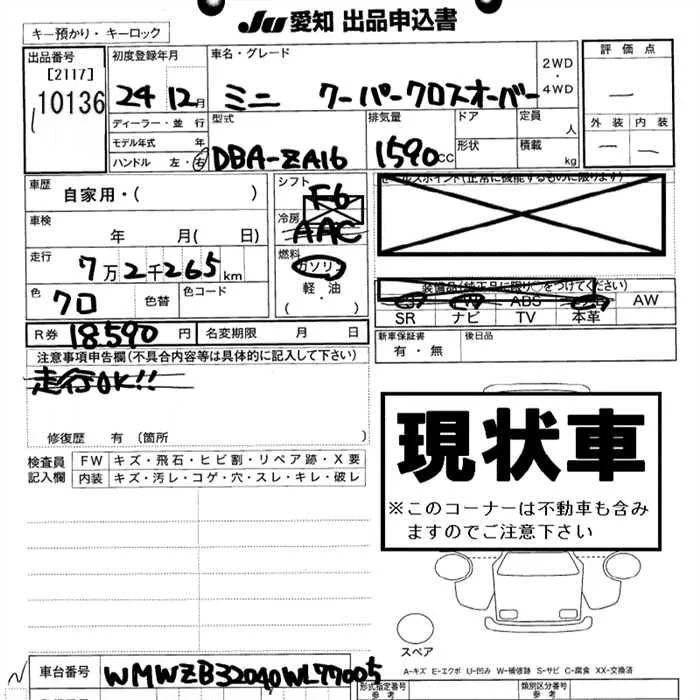 JU 愛知 出品申込書
キー預かり・キーロック
出品番号
[2117]
10136
初度登録年月
24 12月
車名・グレード
ミニ クーパークロスオーバー
2WD
・
4WD
評価点
—
外装 内装
— —
ディーラー・並行
モデル年式 年
ハンドル 左・右
型式
DBA-ZA16
排気量
1590cc
ドア
形状
定員
人
積載
kg
車歴
自家用・( )
車検
年 月( 日)
走行
7万2千265km
色
クロ
色替
色コード
R券 18.590円
名変期限 月 日
シフト
F6
冷房
AAC
燃料
ガソリン
軽・油
( ・ )
セールスポイント(正常に機能するものに限ります)
装備品(純正品に限り○をつけてください)
ABS
AW
SR ナビ TV 本革
新車保証書
有・無
後日品
注意事項申告欄(不具合内容等は具体的に記入して下さい)
走行OK!!
修復歴 有 〔箇所 〕
検査員
記入欄
FW キズ・飛石・ヒビ割・リペア跡・X要
内装 キズ・汚レ・コゲ・穴・スレ・キレ・破レ
現状車
※このコーナーは不動車も含み
ますのでご注意下さい
スペア
A-キズ E-エクボ U-凹み W-補修跡 S-サビ C-腐食 XX-交換済
車台番号
WMWZB32040WL77005
形式指定番号
参考
類別区分番号
参考